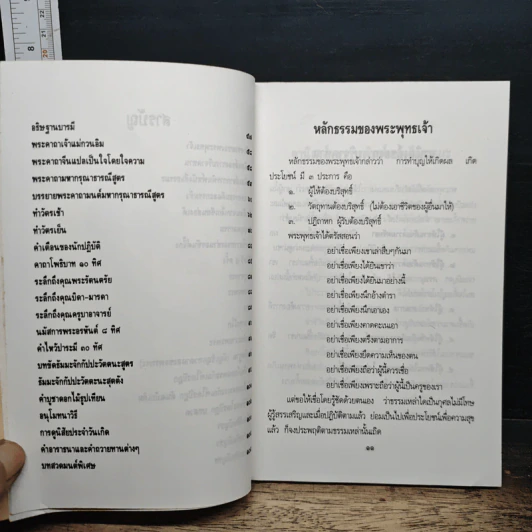 อธิษฐานบารมี
พระคาถาเจ้าแม่กวนอิม
พระคาถาจีนแปลเป็นใจโดยใจความ
พระคาถามหากรุณาธารณีสูตร
บรรยายพระคาถามนต์มหากรุณาธารณีสูตร
ทำวัตรเช้า
ทำวัตรเย็น
คำเตือนของนักปฏิบัติ
คาถาโพธิบาท ๑๐ ทิศ
ระลึกถึงคุณพระรัตนตรัย
ระลึกถึงคุณบิดา-มารดา
ระลึกถึงคุณครูบาอาจารย์
นมัสการพระอรหันต์ ๘ ทิศ
คำไหว้บารมี ๓๐ ทัศ
บทขัดธัมมะจักกัปปะวัตตนะสูตร
ธัมมะจักกัปปะวัตตะนะสูตตัง
คำบูชาดอกไม้ธูปเทียน
อนุโมทนาวิธี
การดูนิสัยประจำวันเกิด
คำอาราธนาและคำถวายทานต่างๆ
บทสวดมนต์พิเศษ
หลักธรรมของพระพุทธเจ้า
หลักธรรมของพระพุทธเจ้ากล่าวว่า การทำบุญให้เกิดผล เกิด
ประโยชน์ มี ๓ ประการ คือ
๑. ผู้ให้ต้องบริสุทธิ์
๒. วัตถุทานต้องบริสุทธิ์ (ไม่ต้องเอาชีวิตของผู้อื่นมาให้)
๓. ปฏิคาหก ผู้รับต้องบริสุทธิ์
พระพุทธเจ้าได้ตรัสสอนว่า
อย่าเชื่อเพียงเขาเล่าสืบๆกันมา
อย่าเชื่อเพียงได้ยินเขาว่า
อย่าเชื่อเพียงได้ยินมาอย่างนี้
อย่าเชื่อเพียงนึกอ้างตำรา
อย่าเชื่อเพียงนึกเอาเอง
อย่าเชื่อเพียงคาดคะเนเอา
อย่าเชื่อเพียงตรึงตามอาการ
อย่าเชื่อเพียงยึดความเห็นของตน
อย่าเชื่อเพียงถือว่าผู้นี้ควรเชื่อ
อย่าเชื่อเพียงเพราะถือว่าผู้นี้เป็นครูของเรา
แต่ขอให้เชื่อโดยรู้ชัดด้วยตนเอง ว่าธรรมเหล่าใดเป็นกุศลไม่มีโทษ
ผู้รู้สรรเสริญและเมื่อปฏิบัติตามแล้ว ย่อมเป็นไปเพื่อประโยชน์เพื่อความสุข
แล้ว ก็จงประพฤติตามธรรมเหล่านั้นเถิด
๑๑